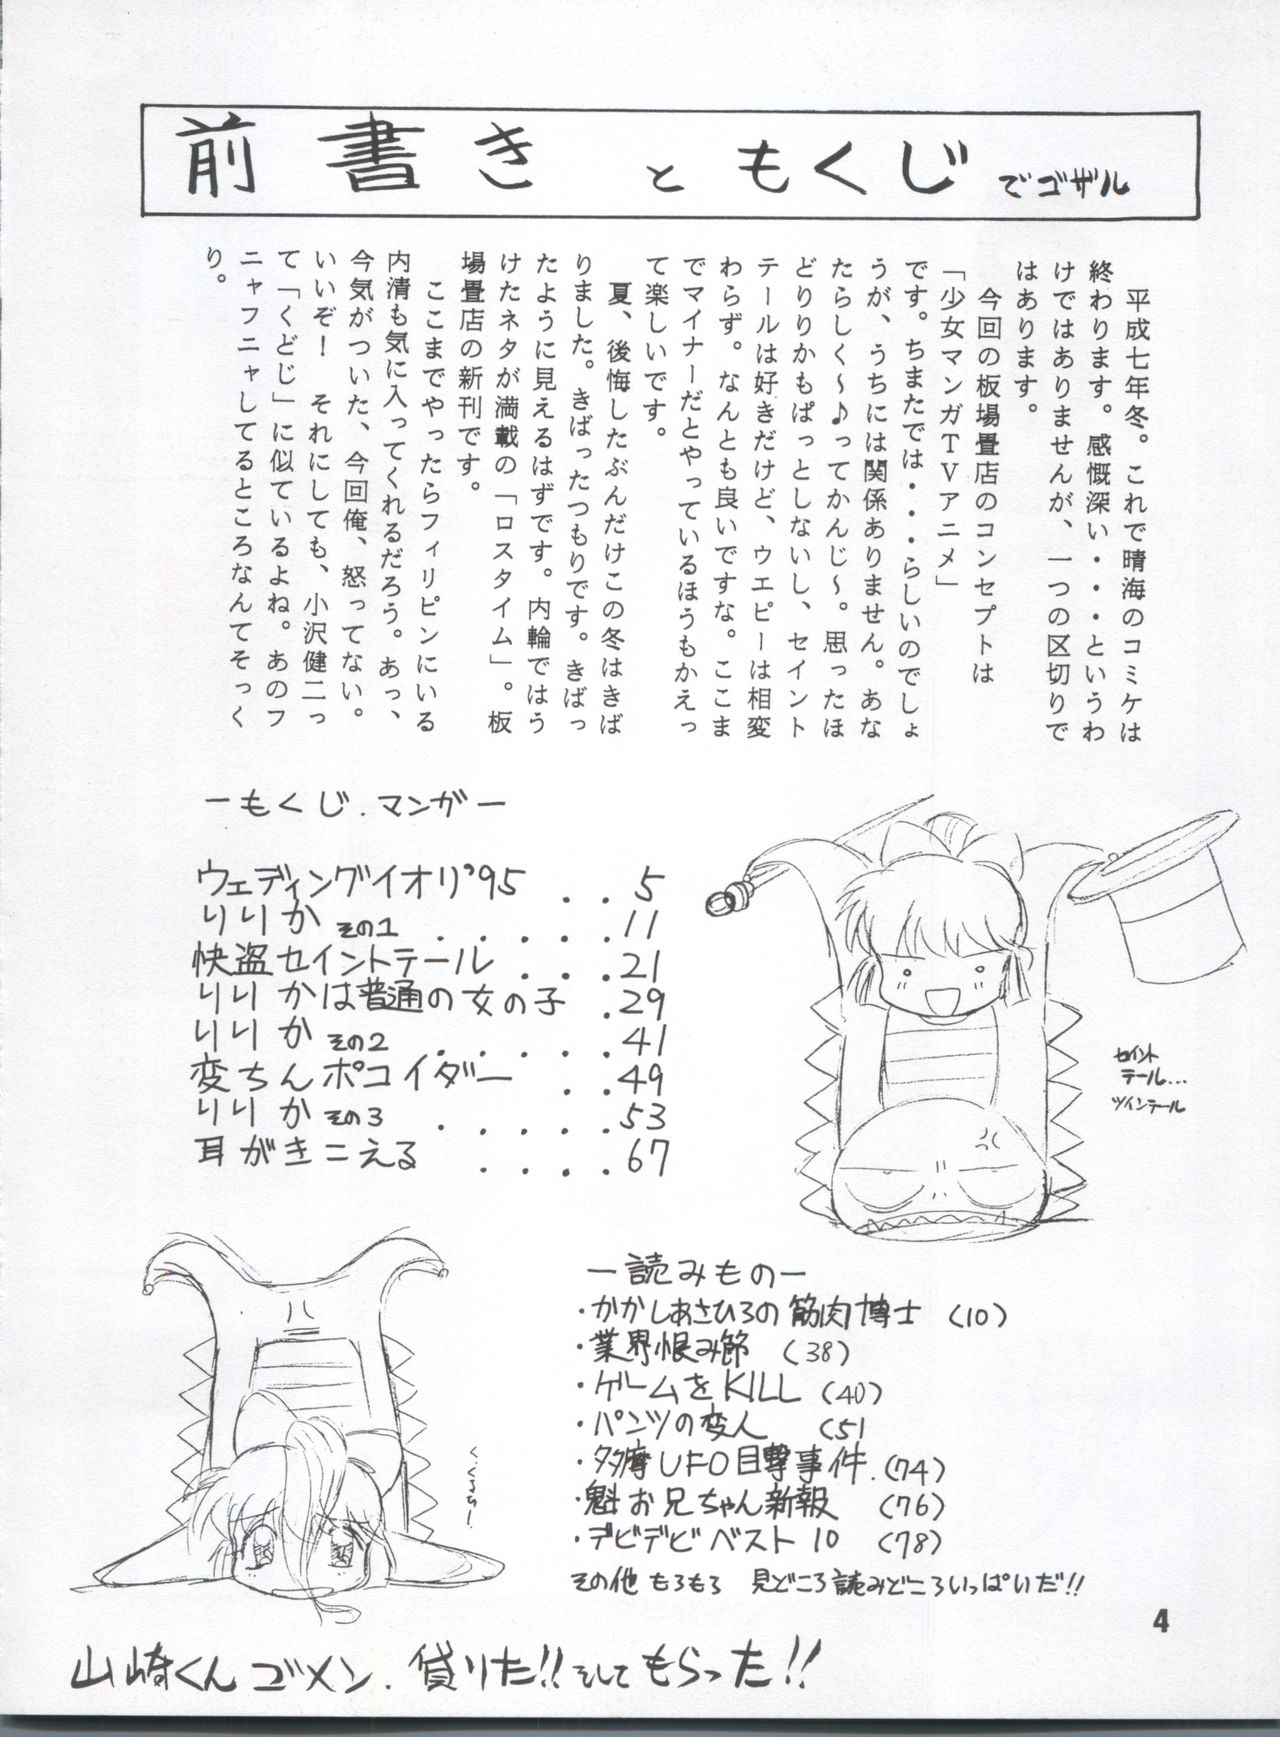 前書きともくじでゴザル
平成七年冬。これで晴海のコミケは
終わります。感慨深い・・・というわ
けではありませんが、一つの区切りで
はあります。
今回の板場畳店のコンセプトは
「少女マンガTVアニメ」
です。ちまたでは・・・らしいのでしょ
うが、うちには関係ありません。あな
たらしく～♪ってかんじ～。思ったほ
どりりかもぱっとしないし、セイント
テールは好きだけど、ウエピーは相変
わらず。なんとも良いですな。ここま
でマイナーだとやっているほうもかえっ
て楽しいです。
夏、後悔したぶんだけこの冬はきば
りました。きばったつもりです。きばっ
たように見えるはずです。内輪ではう
けたネタが満載の「ロスタイム」。板
場畳店の新刊です。
ここまでやったらフィリピンにいる
内清も気に入ってくれるだろう。あっ、
今気がついた、今回俺、怒ってない。
いいぞ！　それにしても、小沢健二っ
て「くどじ」に似ているよね。あのフ
ニャフニャしてるところなんてそっく
り。
ーもくじ.マンガー
ウェディングイオリ'95 . . 5
りりか その1 . . . . . 11
快盗セイントテール . . . 21
りりかは普通の女の子 . 29
りりか その2 . . . . . 41
変ちんポコイダー . . 49
りりか その3 . . . . . 53
耳がきこえる . . . . 67
セイント
テール...
ツインテール
ー読みものー
・かかしあさひろの筋肉博士 (10)
・業界恨み節 (38)
・ゲームをKILL (40)
・パンツの変人 (51
・多摩UFO目撃事件. (74)
・魁お兄ちゃん新報 (76)
・デビデビベスト10 (78)
その他もろもろ 見どころ読みどころいっぱいだ!!
く、くるちー
4
山崎くんゴメン.借りた!!そしてもらった!!